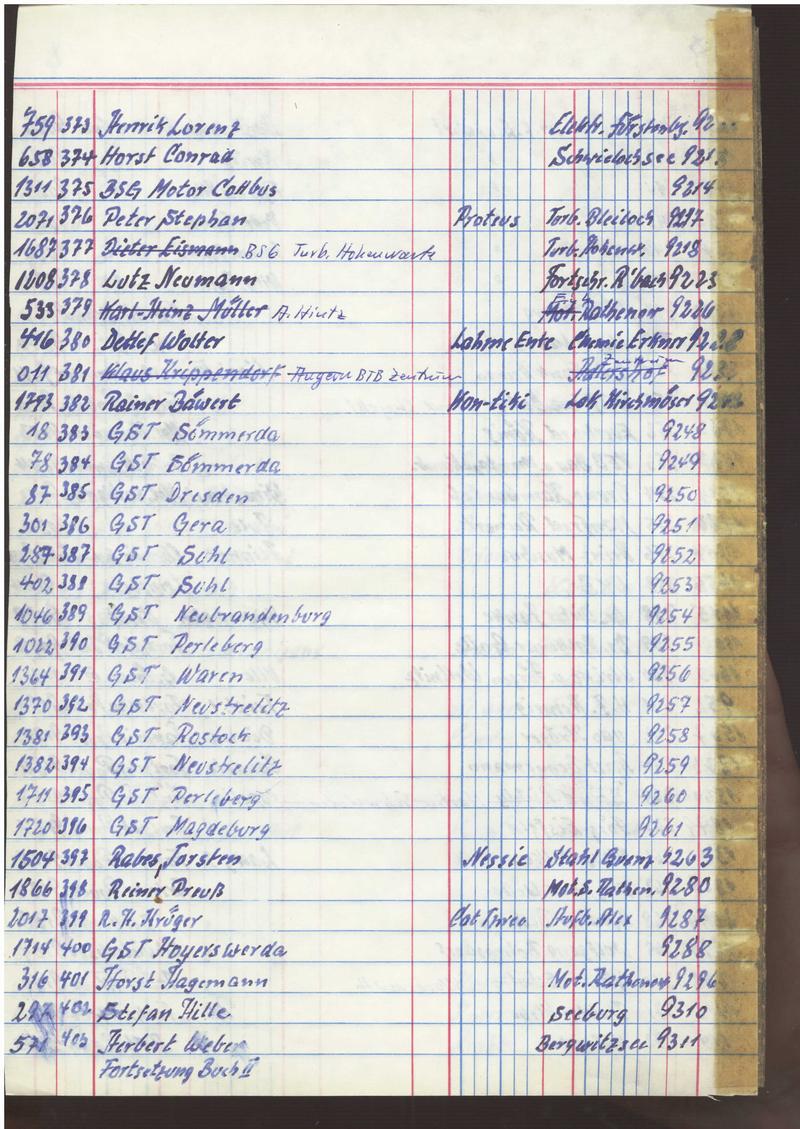 759 373 Henrik Lorenz Elektr. Fürstenbg. 92
658 374 Horst Conrad Schwielochsee 921
1311 375 BSG Motor Cottbus 9214
2071 376 Peter Stephan Proteus Turb. Bleiloch 9217
1687 377 Dieter Eismann BSG Turb. Hohenwarte Turb. Hohenw. 9218
1208 378 Lutz Neumann Fortschr. R'bach 9223
533 379 Karl-Heinz Müller A. Hintz Rathenow 9226
416 380 Detlef Wolter Lahme Ente Chemie Erkner 92
011 381 Klaus Krippendorf Augern BTB Zentrum Adlershof Zentrum 923
1793 382 Rainer Bäwert Kon-tiki Lok Kirchmöser 92
18 383 GST Sömmerda 9248
78 384 GST Sömmerda 9249
87 385 GST Dresden 9250
301 386 GST Gera 9251
287 387 GST Suhl 9252
402 388 GST Suhl 9253
1046 389 GST Neubrandenburg 9254
1022 390 GST Perleberg 9255
1364 391 GST Waren 9256
1370 392 GST Neustrelitz 9257
1381 393 GST Rostock 9258
1382 394 GST Neustrelitz 9259
1711 395 GST Perleberg 9260
1720 396 GST Magdeburg 9261
1504 397 Rabes, Torsten Nessie Stahl 9263
1866 398 Reiner Preuß Mot. S. Rathen. 9280
2017 399 R. H. Krüger Cat Three Aufb. Alex 9287
1714 400 GST Hoyerswerda 9288
316 401 Horst Hagemann Mot. Rathenow 9296
297 402 Stefan Hille Seeburg 9310
571 403 Herbert Weber Bergwitzsee 9311
Fortsetzung Buch II